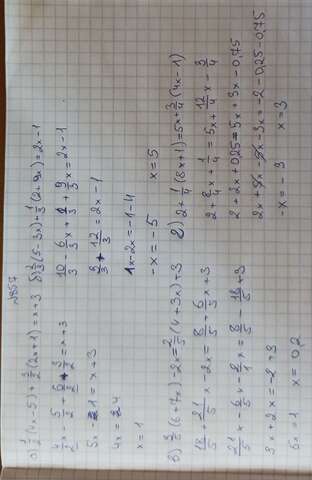 №857
а) 1/2(4x-5)+3/2(2x+1)=x+3
4/2x-5/2+6/2x+3/2=x+3
5x-1=x+3
4x=4
x=1
б) 2/3(5-3x)+1/3(2+9x)=2x-1
10/3-6/3x+2/3+9/3x=2x-1
12/3=2x-1
1x-2x=-1-4
-x=-5 x=5
в) 3/5(6+7x)-2x=2/5(4+3x)+3
18/5+21/5x-2x=8/5+6/5x+3
21/5x-6/5x-2/1x=8/5-18/5+3
3x+2x=-2+3
5x=1 x=0,2
г) 2+1/4(8x+1)=5x+3/4(4x-1)
2+8/4x+1/4=5x+12/4x-3/4
2+2x+0,25=5x+3x-0,75
2x-5x-3x=-2-0,25-0,75
-x=-3 x=3